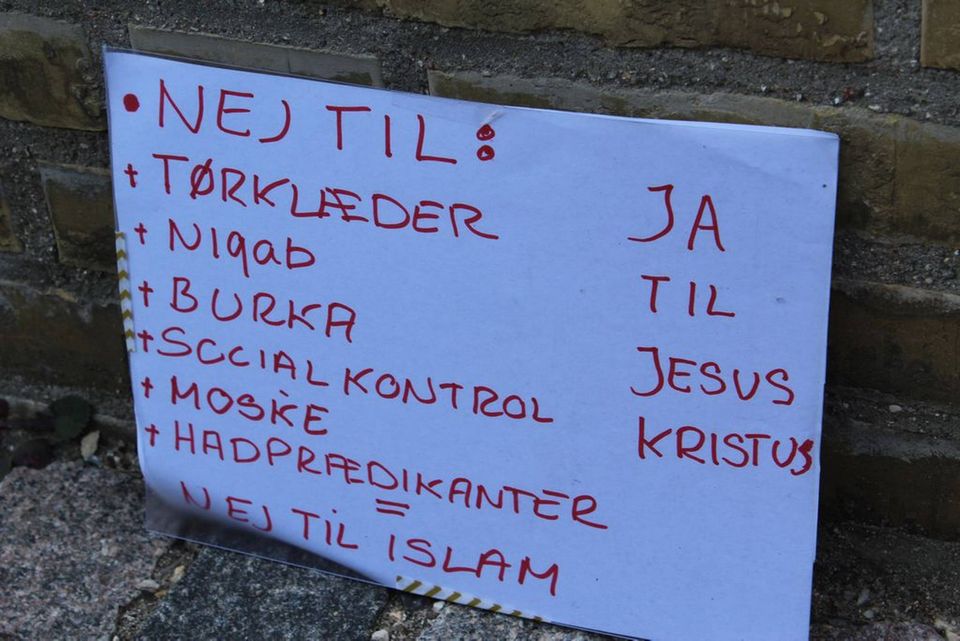 • NEJ TIL :
+ TØRKLÆDER
+ NIqab
+ BURKA
+ SOCIAL KONTROL
+ MOSKE
+ HADPRÆDIKANTER
=
NEJ TIL ISLAM
JA
TIL
JESUS
KRISTUS